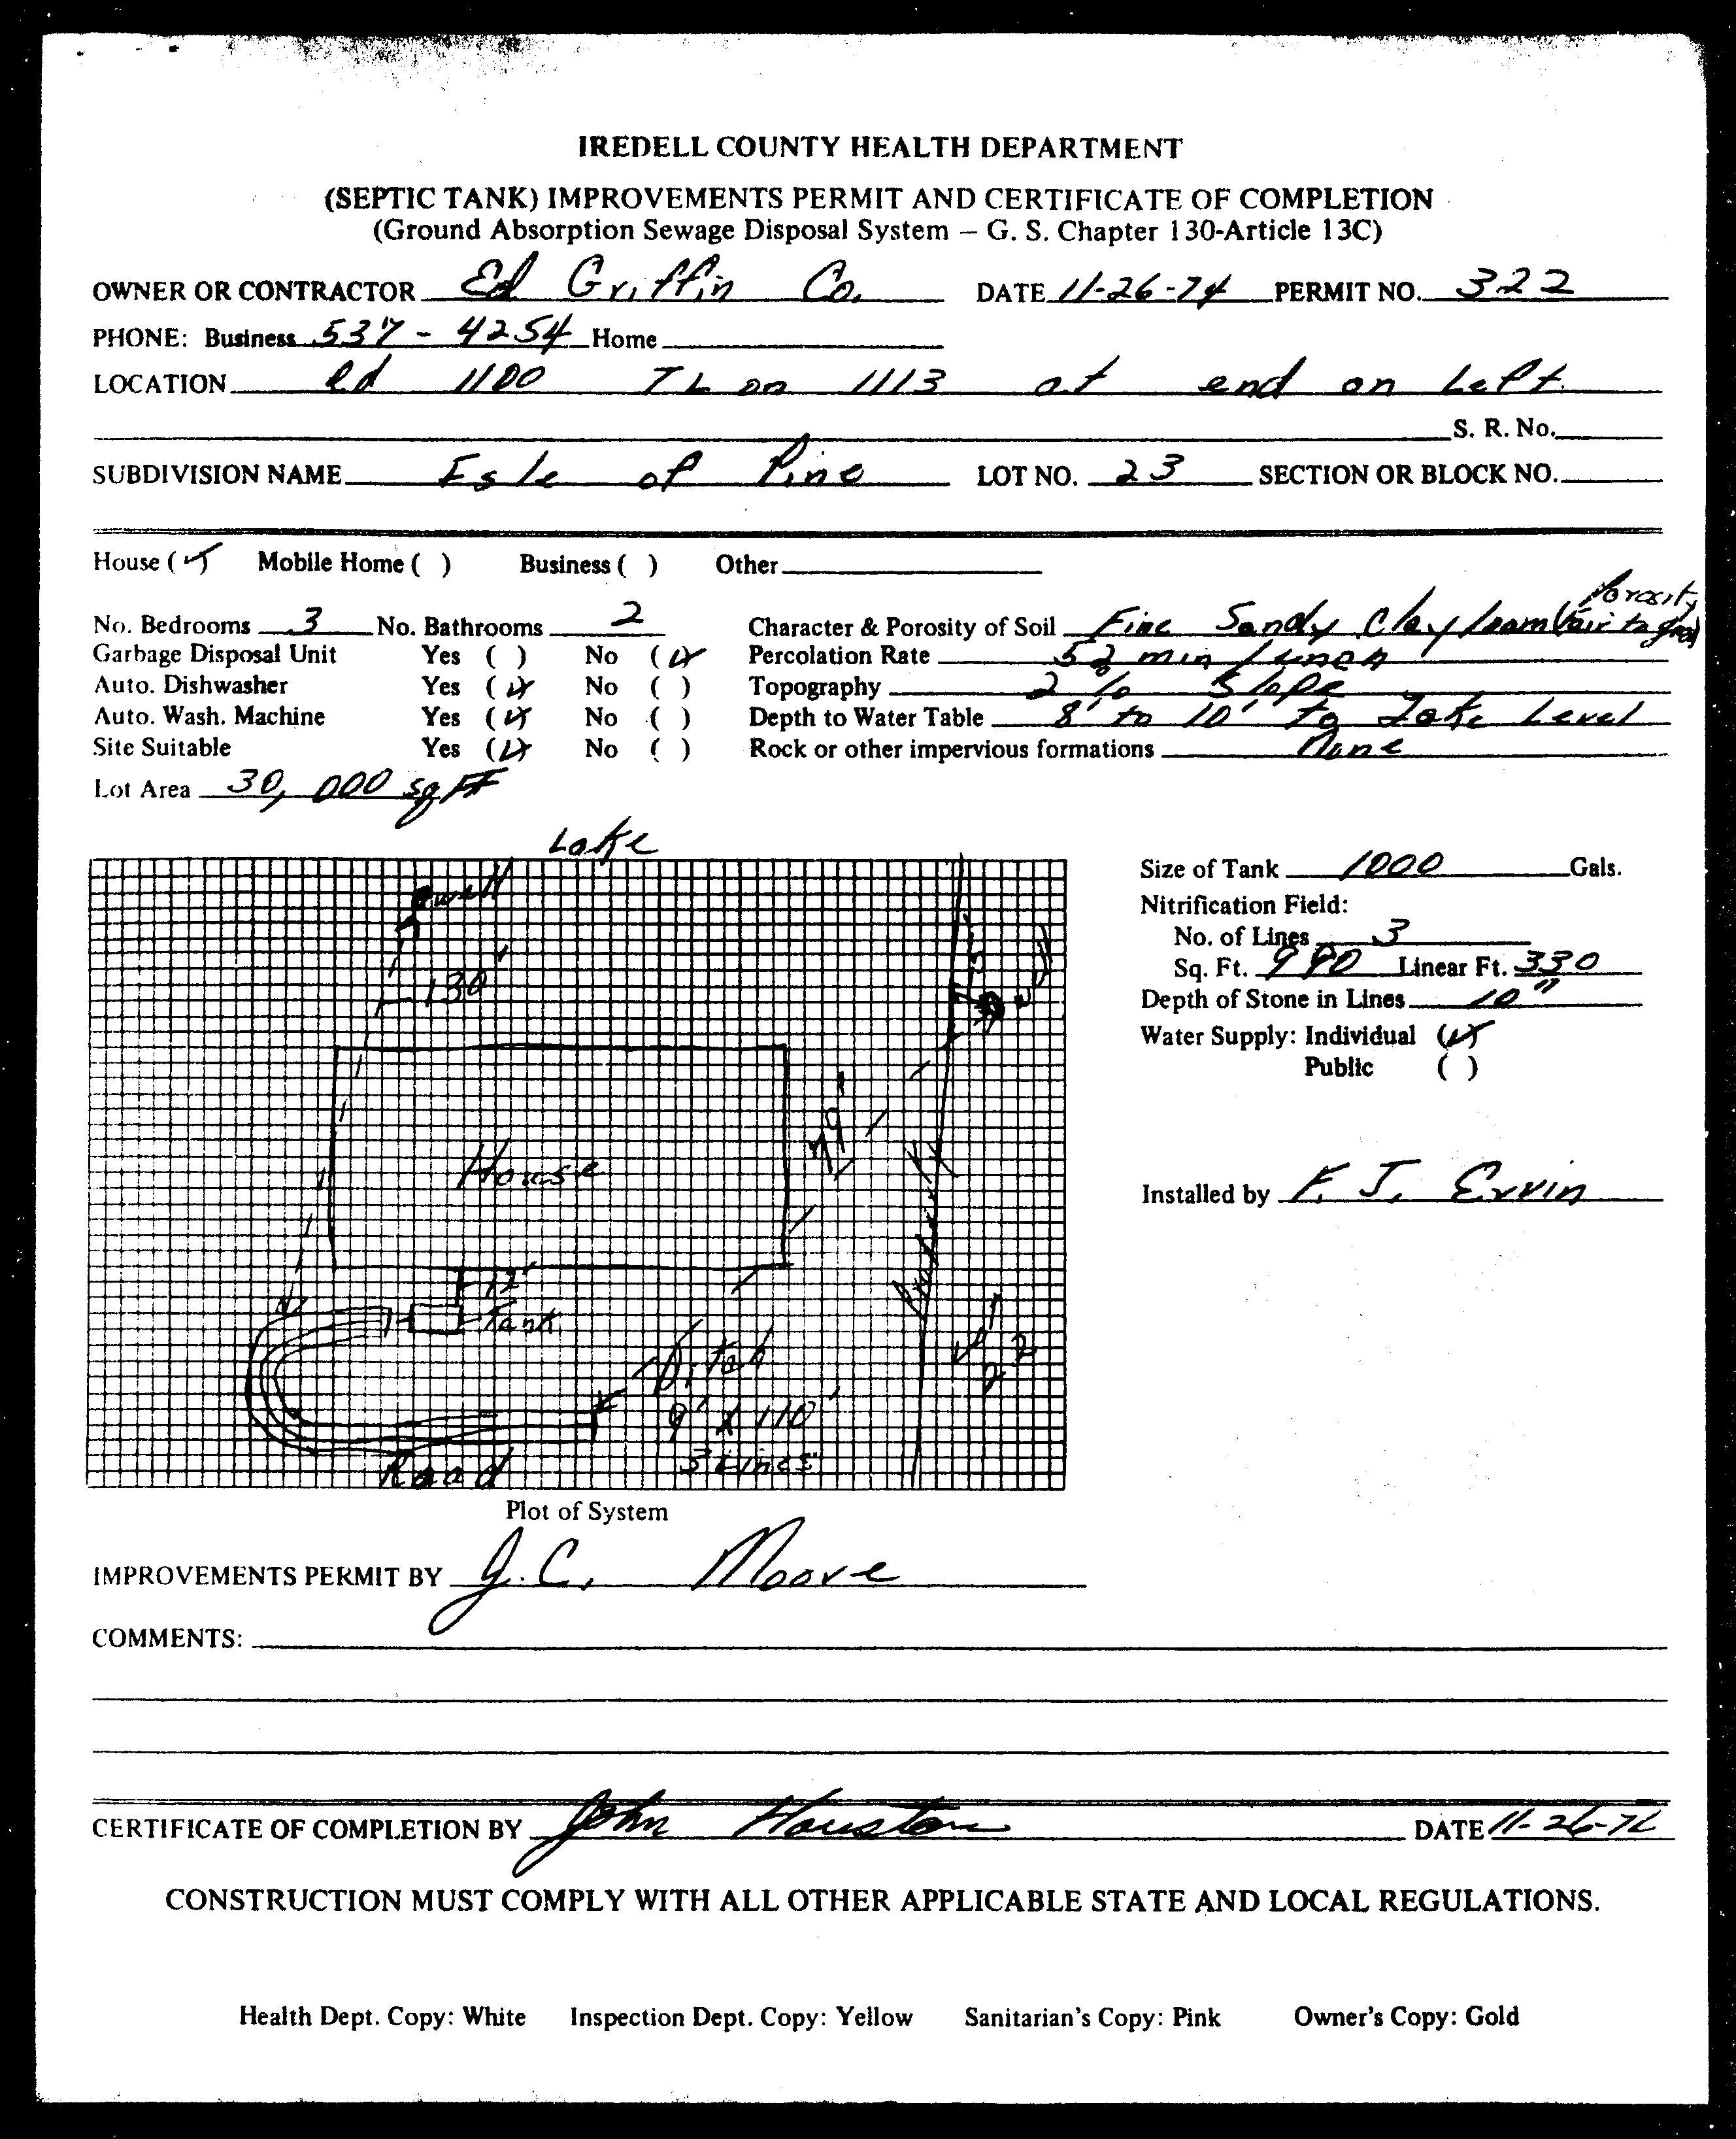 IREDELL COUNTY HEALTH DEPARTMENT
(SEPTIC TANK) IMPROVEMENTS PERMIT AND CERTIFICATE OF COMPLETION
(Ground Absorption Sewage Disposal System – G. S. Chapter 130-Article 13C)
OWNER OR CONTRACTOR Ed Griffin Co. DATE 11-26-74 PERMIT NO. 322
PHONE: Business 537-4254 Home
LOCATION Rd 1100 TL on 1113 at end on Left.
S. R. No.
SUBDIVISION NAME Esle of Pine LOT NO. 23 SECTION OR BLOCK NO.
House (✓) Mobile Home ( ) Business ( ) Other
Porosity
No. Bedrooms 3 No. Bathrooms 2 Character & Porosity of Soil Fine Sandy Clay loam (fair to good)
Garbage Disposal Unit Yes ( ) No (✓) Percolation Rate min / inch
Auto. Dishwasher Yes (✓) No ( ) Topography 2 % Slope
Auto. Wash. Machine Yes (✓) No ( ) Depth to Water Table 8' to 10' to Lake Level
Site Suitable Yes (✓) No ( ) Rock or other impervious formations None
Lot Area 30,000 sq Ft
Lake
well
130'
79'
House
12'
Tank
Ditch
9' x 110'
3 Lines
Road
22
Plot of System
Size of Tank 1000 Gals.
Nitrification Field:
No. of Lines 3
Sq. Ft. 990 Linear Ft. 330
Depth of Stone in Lines 10"
Water Supply: Individual (✓)
Public ( )
Installed by F. J. Ervin
IMPROVEMENTS PERMIT BY J.C. Moore
COMMENTS:
CERTIFICATE OF COMPLETION BY John Houston DATE 11-26-74
CONSTRUCTION MUST COMPLY WITH ALL OTHER APPLICABLE STATE AND LOCAL REGULATIONS.
Health Dept. Copy: White Inspection Dept. Copy: Yellow Sanitarian's Copy: Pink Owner's Copy: Gold